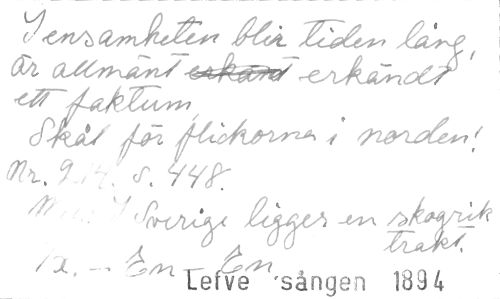 I ensamheten blir tiden lång,
är allmänt erkändt
ett faktum,
Skål för flickorna i norden!
Nr. 9 S. 448.
I Sverige ligger en skogrik
trakt.
En - En
Lefve sången 1894